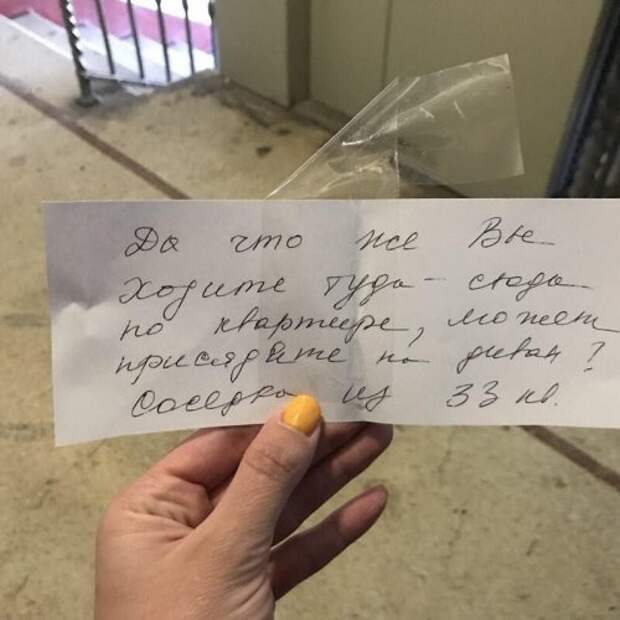 Да что же Вы
ходите туда-сюда
по квартире, может
присядите на диван?
Соседка из 33 кв.